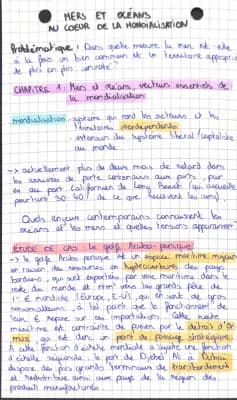 MERS ET OCÉANS
AU COEUR DE LA MONDIALISATION
Problématique : Dans quelle mesure la mer est-elle
à la fois un bien commun et un territoire approprié
de plus en plus convoité ?
CHAPITRE 1 : Mers et océans, vecteurs essentiels de
la mondialisation
mondialisation : système qui rend les acteurs et les
territoires interdépendants
extension du système libéral/capitaliste
au monde
-> actuellement plus de deux mois de retard dans
les arrivées de porte conteneurs aux ports, par
ex au port californien de Long Beach (qui accueille
pourtant 30 40% de ce que reçoivent les
Quels enjeux contemporains connaissent les
océans et les mers et quelles tensions apparaissent ?
ÉTUDE DE CAS : Le golfe Arabo-persique
-> le golfe Arabo persique est un espace maritime majeur
en raison des ressources en hydrocarbures des pays
bordiers, qui sont exportées par voie maritime dans le
reste du monde et vers les grands pôles de
l' € mondiale (Europe, E-U), qui en sont de gros
consommateurs, à tel point que le fonctionnement de
leur € repose sur ces importations. Cette route
maritime est contrainte de passer par le détroit d'Or
muz, qui est donc un point de passage stratégique.
A cette fonction d'échelle mondiale s'ajoute une fonction
d'échelle régionale : le port de Djebel Ali à Dubaï
dispose des plus grands terminaux de transbordement
et redistribue ainsi aux pays de la région des
produits manufacturés.